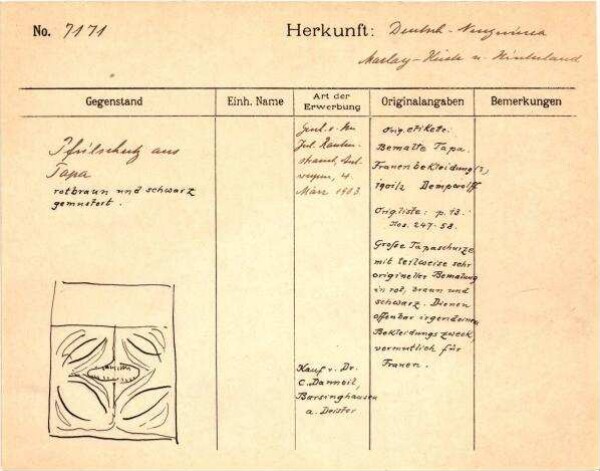 No. 7171
Herkunft: Deutsch-Neuguinea
Maclay-Küste u. Hinterland
Gegenstand
Einh. Name
Art der Erwerbung
Originalangaben
Bemerkungen
aus
Tapa
rotbraun und schwarz
gemustert.
März 1903
Kauf v. Dr.
C. Danneil,
Barsinghausen
a. Deister
Orig. etikete:
Bemalte Tapa.
Frauenbekleidung(?),
1901/2 Dempwolff
Orig. liste: p. 13.
Nos. 247-58.
Große Tapaschurze
mit teilweise sehr
origineller Bemalung
in rot, braun und
schwarz. Dienen
offenbar irgendeinem
Bekleidungszweck,
vermutlich für
Frauen.